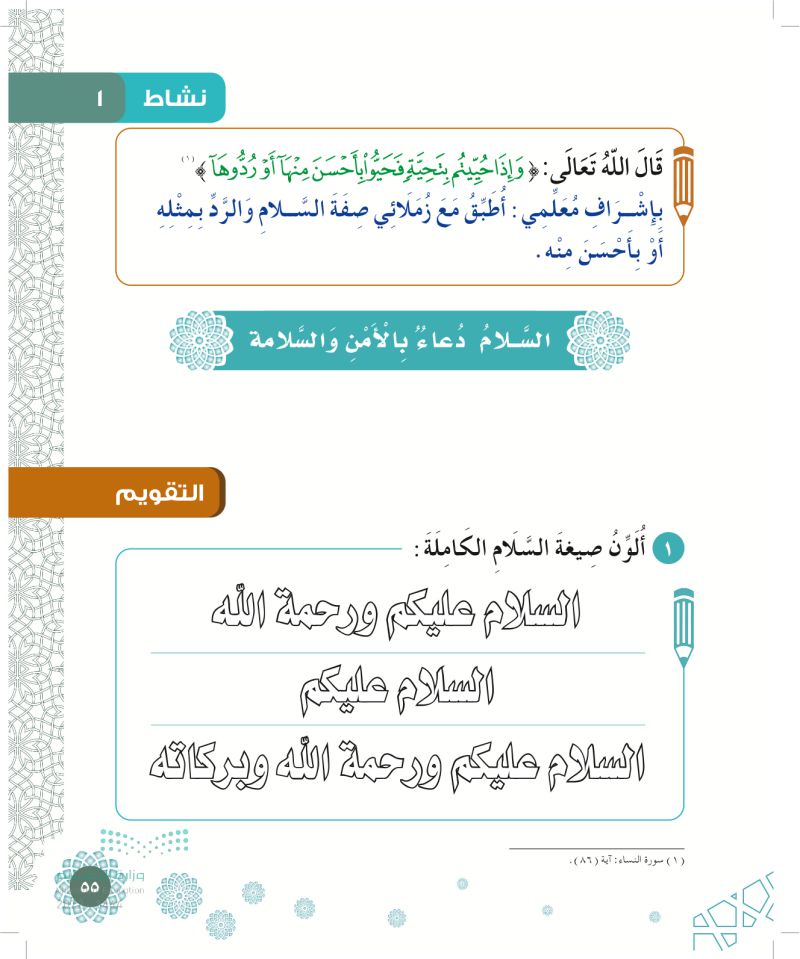 نشاط ١
قَالَ اللّهُ تَعَالَى: ﴿ وَإِذَا حُيِّيتُم بِتَحِيَّةٍ فَحَيُّوا۟ بِأَحْسَنَ مِنْهَآ أَوْ رُدُّوهَآ ﴾ (١)
بِإِشْـرَافِ مُعَلِّمِي : أُطَبِّقُ مَعَ زُمَلَائِي صِفَةَ السَّـلامِ وَالرَّدِّ بِـمِثْلِهِ
أَوْ بِأَحْسَنَ مِنْه .
السَّـلامُ دُعاءٌ بِالْأَمْنِ وَالسَّلامة
التقويم
١ أُلَوِّنُ صِيغَةَ السَّلَامِ الكَامِلَةَ :
السلام عليكم ورحمة الله
السلام عليكم
السلام عليكم ورحمة الله وبركاته
(١) سورة النساء: آية (٨٦).
٥٥